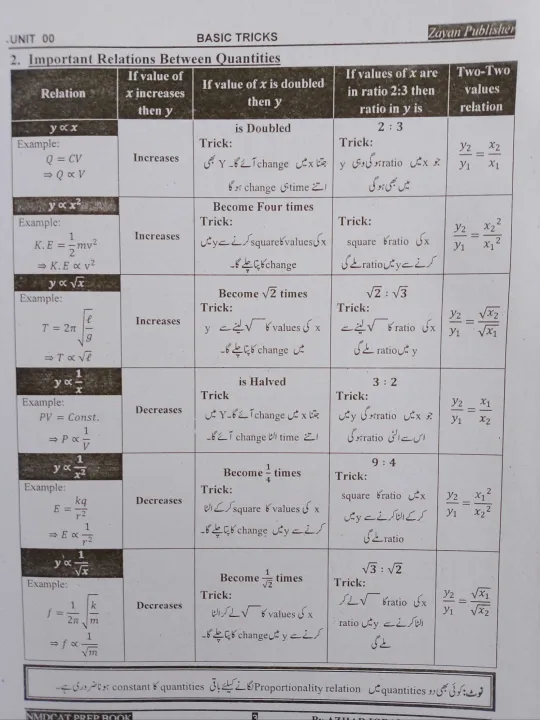 UNIT 00
BASIC TRICKS
Zayan Publisher
2. Important Relations Between Quantities
Relation
If value of
x increases
then y
If value of x is doubled
then y
If values of x are
in ratio 2:3 then
ratio in y is
Two-Two
values
relation
y ∝ x
Example:
Q = CV
⇒ Q ∝ V
Increases
is Doubled
Trick:
جتنا x میں change آئے گا۔ Y بھی
اتنے time ہی change ہو گا
2 : 3
Trick:
جو x میں ratio ہوگی وہی y
میں بھی ہوگی
y₂/y₁ = x₂/x₁
y ∝ x²
Example:
K.E = 1/2 mv²
⇒ K.E ∝ v²
Increases
Become Four times
Trick:
x کی values کا square کرنے سے y میں
change کا پتا چلے گا۔
Trick:
x کی ratio کا square
کرنے سے y میں ratio ملے گی
y₂/y₁ = x₂²/x₁²
y ∝ √x
Example:
T = 2π √(ℓ/g)
⇒ T ∝ √ℓ
Increases
Become √2 times
Trick:
x کی values کا √ لینے سے y
میں change کا پتا چلے گا۔
√2 : √3
Trick:
x کی ratio کا √ لینے سے
y میں ratio ملے گی
y₂/y₁ = √x₂/√x₁
y ∝ 1/x
Example:
PV = Const.
⇒ P ∝ 1/V
Decreases
is Halved
Trick
جتنا x میں change آئے گا۔ Y میں
اتنے time الٹا change آئے گا۔
3 : 2
Trick:
جو x میں ratio ہوگی y میں
اس سے الٹی ratio ہوگی
y₂/y₁ = x₁/x₂
y ∝ 1/x²
Example:
E = kq/r²
⇒ E ∝ 1/r²
Decreases
Become 1/4 times
Trick:
x کی values کا square کر کے الٹا
کرنے سے y میں change کا پتا چلے گا۔
9 : 4
Trick:
x میں ratio کا square
کر کے الٹا کرنے سے y میں
ratio ملے گی
y₂/y₁ = x₁²/x₂²
y ∝ 1/√x
Example:
f = 1/2π √(k/m)
⇒ f ∝ 1/√m
Decreases
Become 1/√2 times
Trick:
x کی values کا √ لے کر الٹا
کرنے سے y میں change کا پتا چلے گا۔
√3 : √2
Trick:
x کی ratio کا √ لے کر
الٹا کرنے سے y میں ratio
ملے گی
y₂/y₁ = √x₁/√x₂
نوٹ: کوئی بھی دو quantities میں Proportionality relation لگانے کیلئے باقی quantities کا constant ہونا ضروری ہے۔
NMDCAT PREP BOOK
3